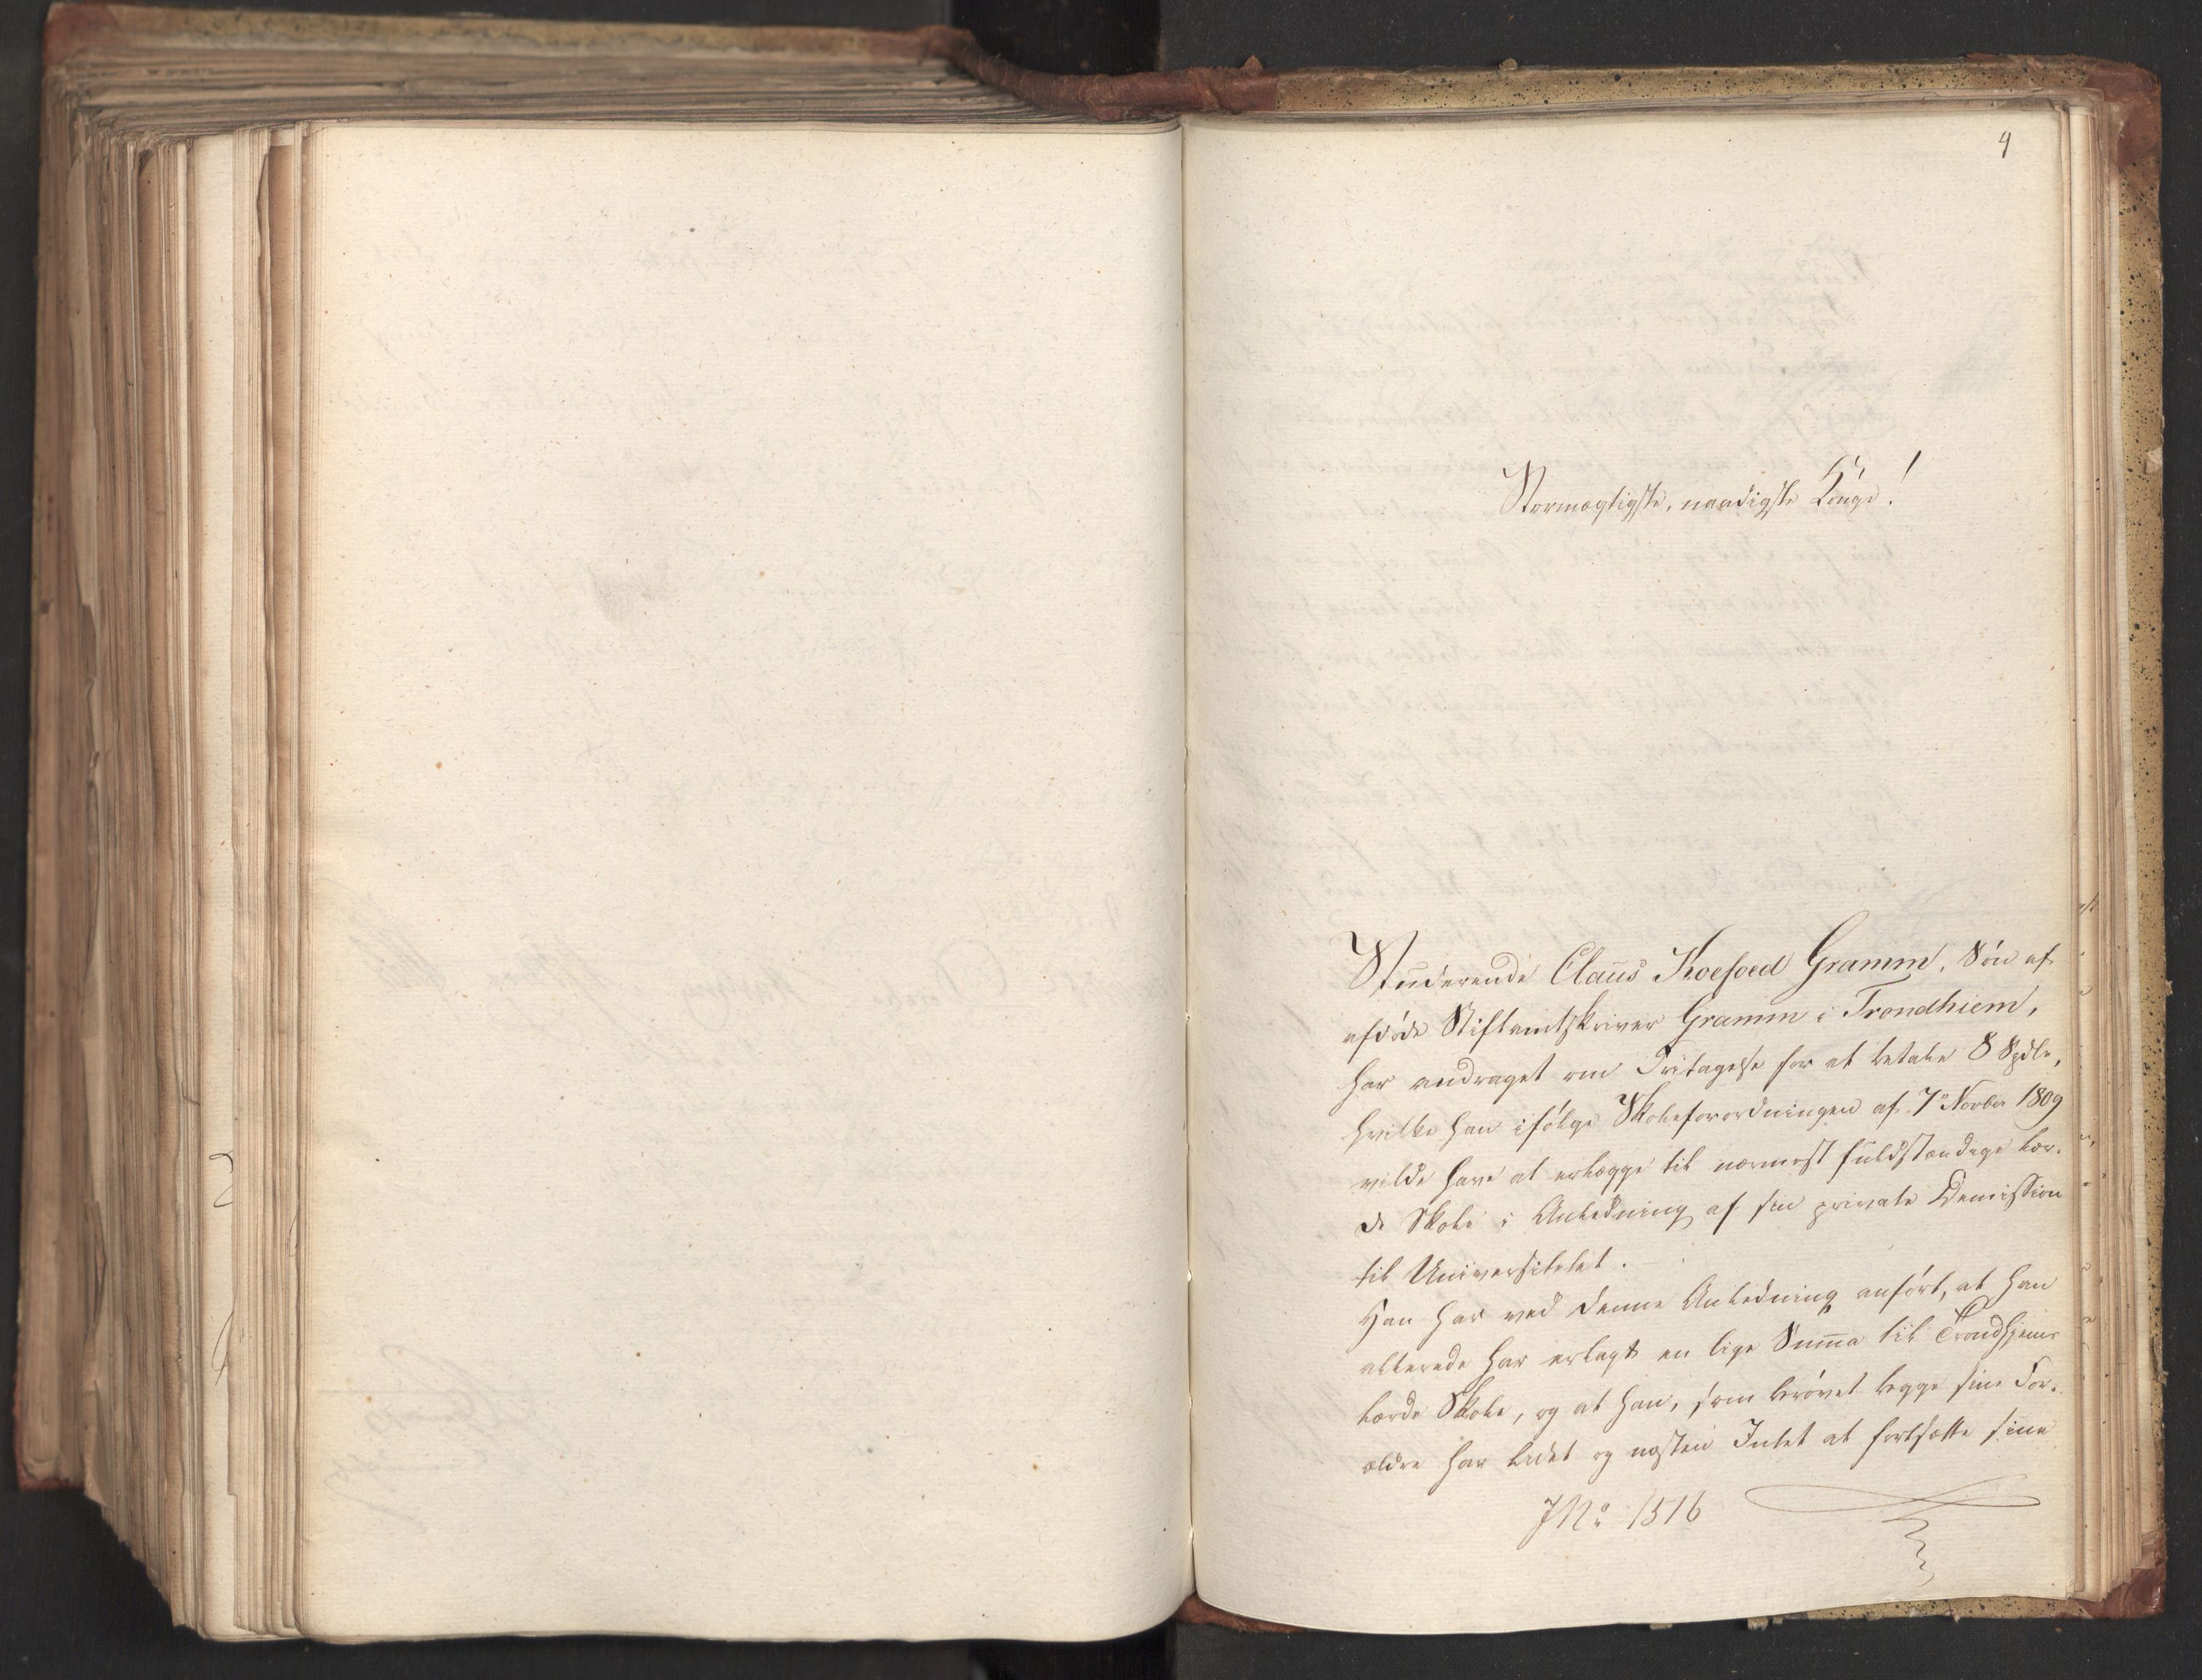 4
Stormægtigste, naadigste Konge!
Studerende Claus Koefoed Gramm, Sön af
afdöde Stiftamtskriver Gramm i Trondhiem,
har andraget om Fritagelse for at betale 8 Spdlr,
hvilke han ifölge Skoleforordningen af 7de Novbr 1809
vilde have at erlægge til nærmest fuldstændige lær-
de Skole i Anledning af sin private Demission
til Universitetet.
Han har ved denne Anledning anfört, at han
allerede har erlagt en lige Summa til Trondhjems
lærde Skole, og at han, som berövet begge sine For-
ældre har lidet og næsten Intet at fortsætte sine
JNo 1516